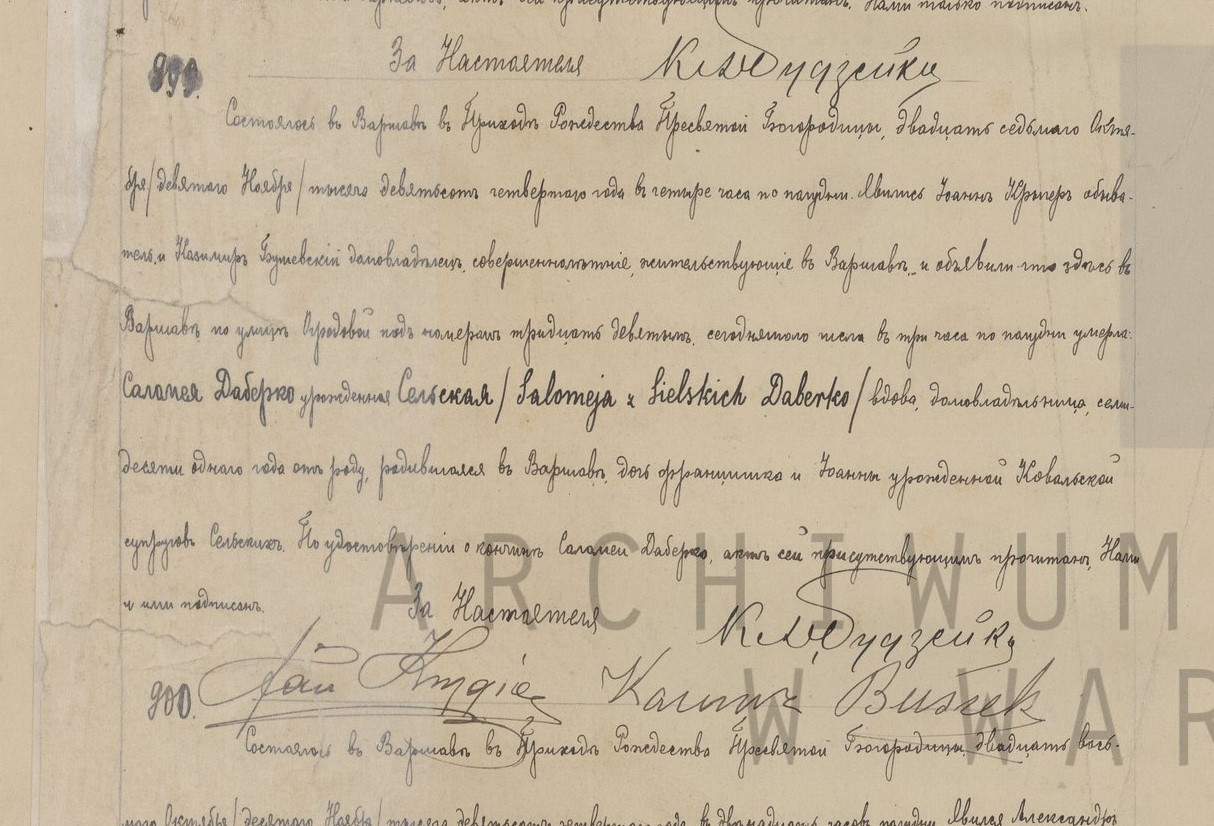 прочитанъ. Нами только подписанъ.
899.
За Настоятеля
Состоялось въ Варшавѣ въ Приходѣ Рождества Пресвятой Богородицы, двадцать седьмаго Октя-
бря/девятаго Ноября/ тысяча девятьсотъ четвертаго года въ четыре часа по полудни. Явились Іоаннъ Крыгеръ обыва-
тель, и Казимиръ Бушевскій домовладѣлецъ, совершеннолѣтніе, жительствующіе въ Варшавѣ, и объявили что здѣсь въ
Варшавѣ по улицѣ Огродовой подъ номеромъ тридцать девятымъ, сегодняшняго числа въ три часа по полудни умерла:
Саломея Даберко урожденная Сельская/ Salomeja z Sielskich Daberko/ вдова, домовладѣльница, семи-
десяти одного года отъ роду, родившаяся въ Варшавѣ, дочь Францишка и Іоанны урожденной Ковальской
супруговъ Сельскихъ. По удостовѣреніи о кончинѣ Саломеи Даберко, актъ сей присутствующимъ прочитанъ, Нами
и ими подписанъ.
За Настоятеля
900.
Jan
Состоялось въ Варшавѣ въ Приходѣ Рождества Пресвятой Богородицы, двадцать вось-
маго Октября/ десятаго Ноября/ тысяча девятьсотъ четвертаго года, въ двѣнадцать часовъ полудни. Явился Александръ
ARCHIWUM
W WAR